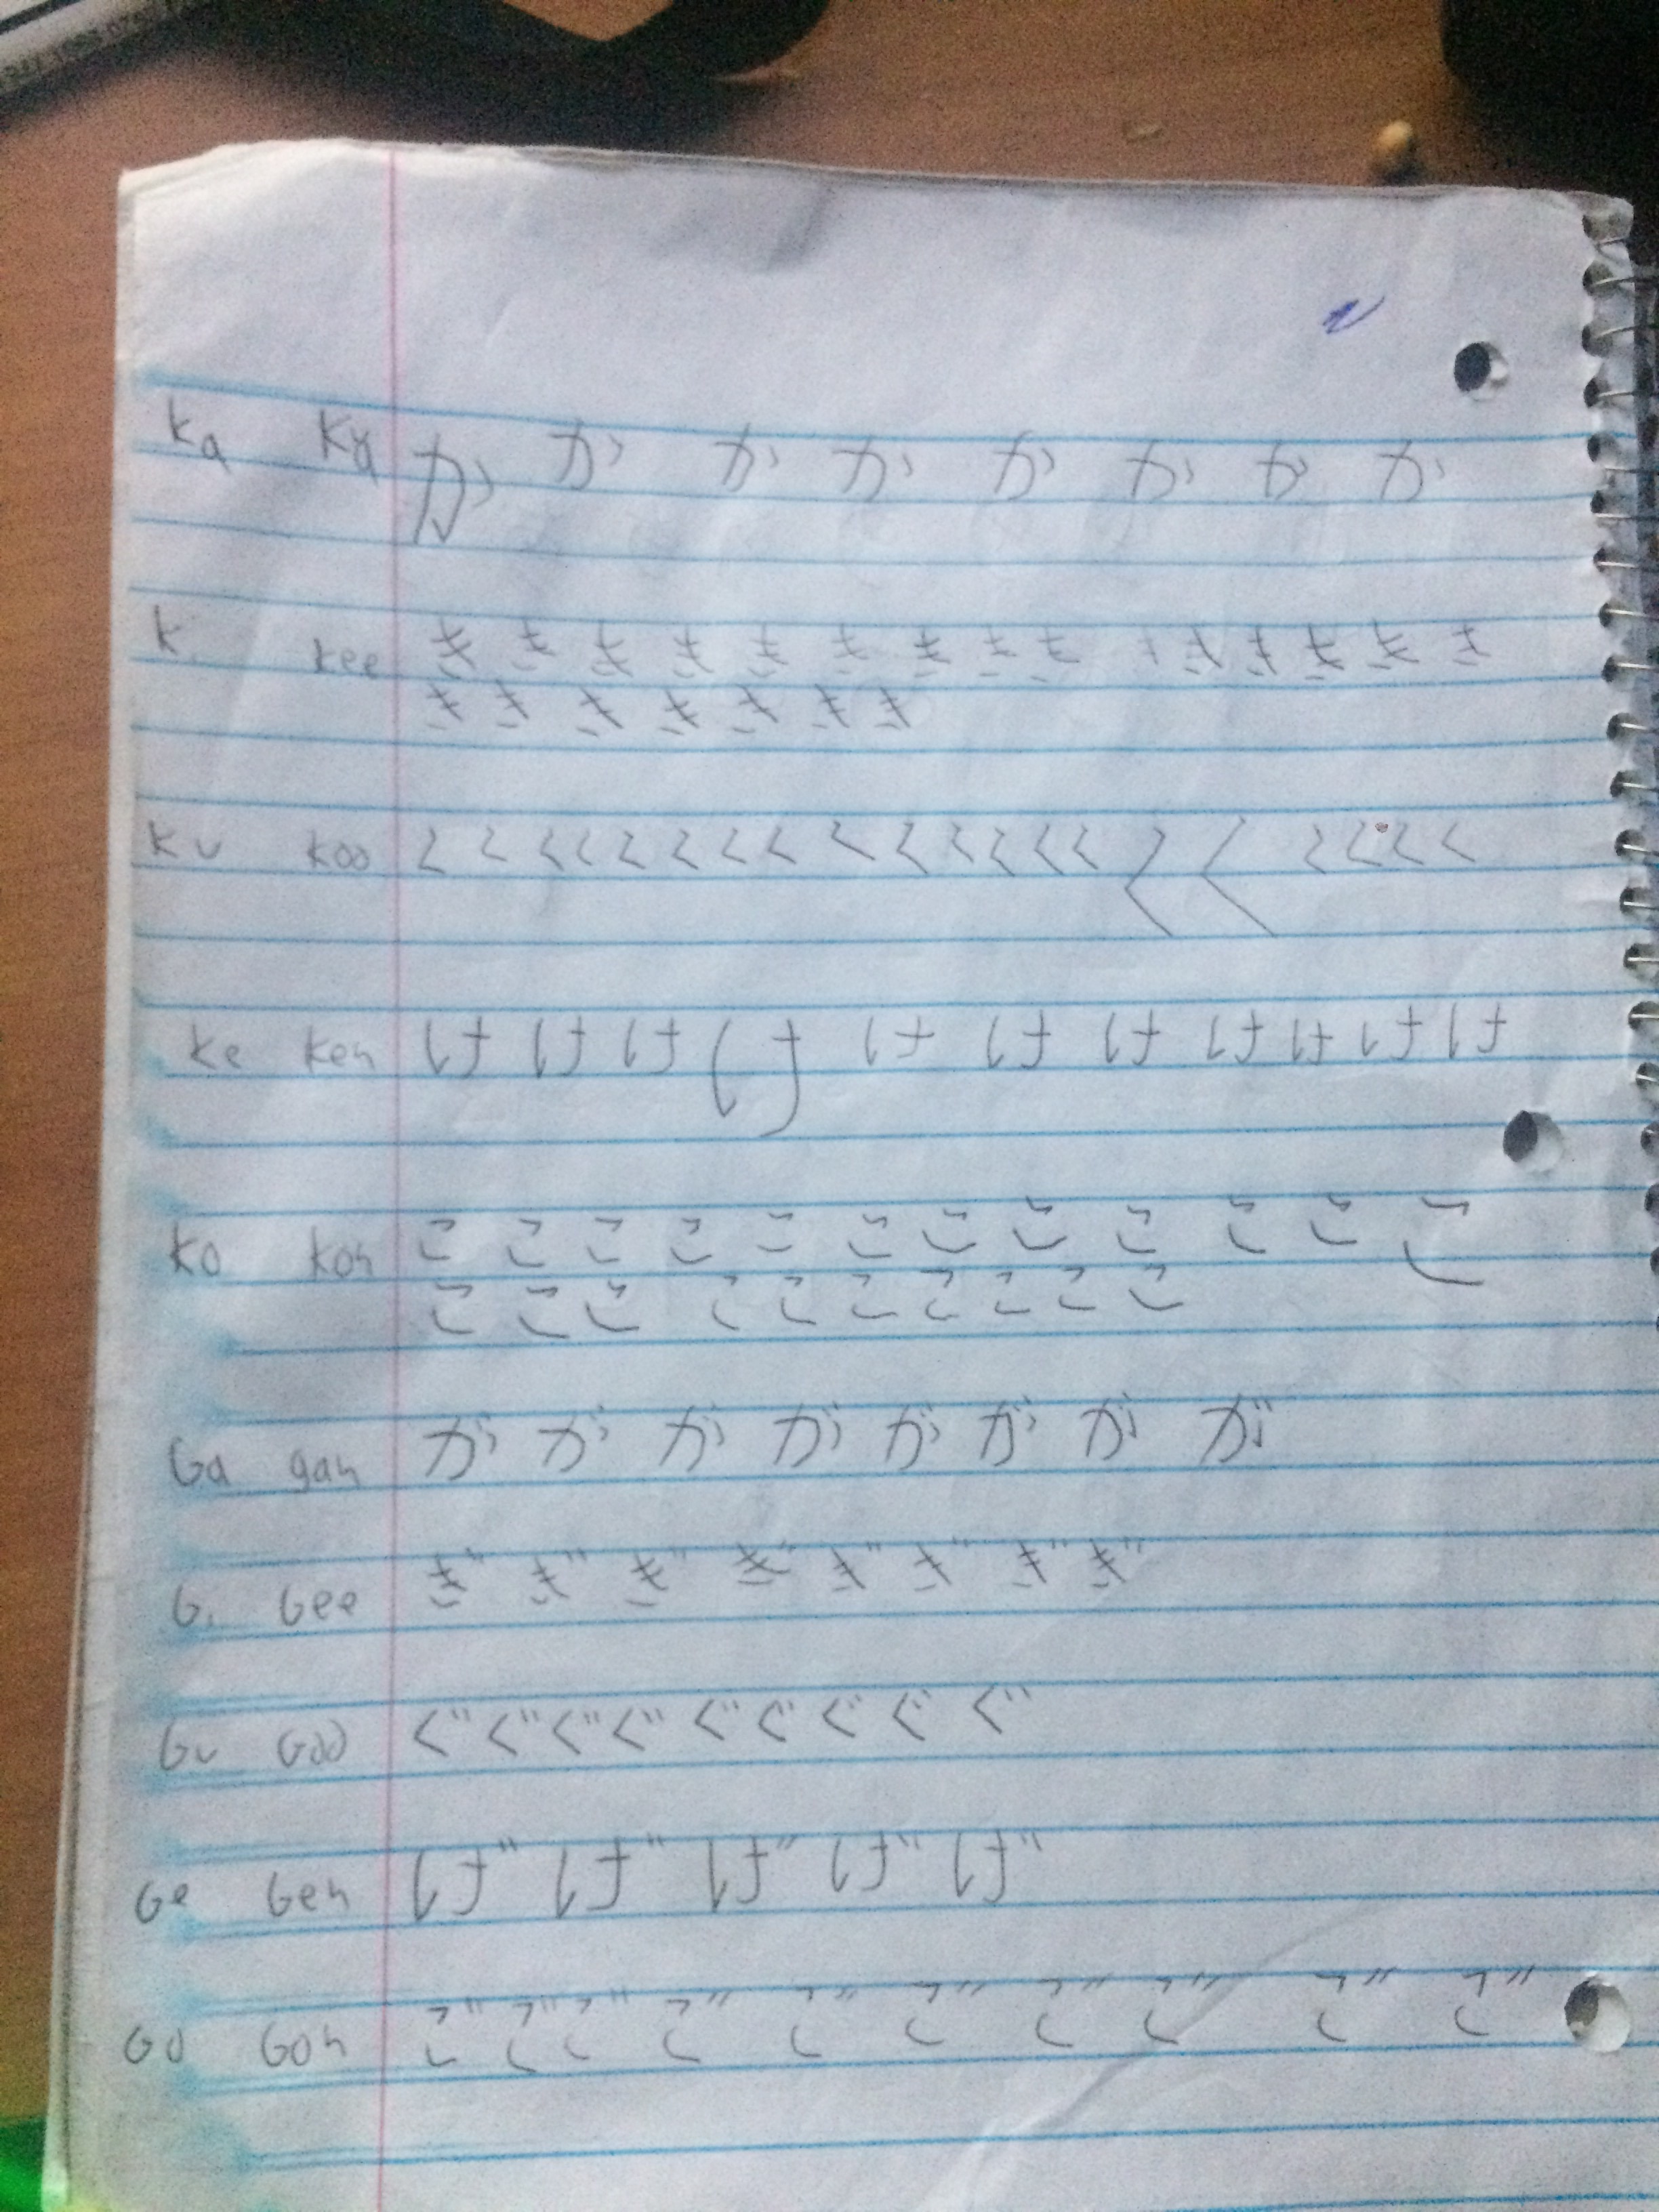 Ka Ka か か か か か か か か
K. Kee き き き き き き き き き き き き き き き
き き き き き き き
Ku Koo く く く く く く く く く く く く く く く く く く く く
Ke Keh け け け け け け け け け け け
Ko Koh こ こ こ こ こ こ こ こ こ こ こ こ
こ こ こ こ こ こ こ こ こ こ
Ga gah が が が が が が が が
Gi Gee ぎ ぎ ぎ ぎ ぎ ぎ ぎ ぎ
Gu Goo ぐ ぐ ぐ ぐ ぐ ぐ ぐ ぐ ぐ
Ge Geh げ げ げ げ げ
Go Goh ご ご ご ご ご ご ご ご ご ご